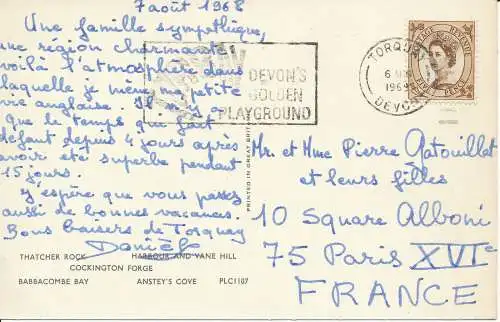 7 août 1968
Une famille sympathique,
une région charmante
voilà l'atmosphère dans
laquelle je mène ma petite
vie anglaise. Il n'y a
que le temps qui fait
défaut depuis 4 jours après
avoir été superbe pendant
15 jours.
J'espère que vous passez
aussi de bonnes vacances.
Bons baisers de Torquay
Danièle
THATCHER ROCK HARBOUR AND VANE HILL
COCKINGTON FORGE
BABBACOMBE BAY ANSTEY'S COVE PLC1107
PRINTED IN GREAT BRITAIN
DEVON'S
GOLDEN
PLAYGROUND
TORQUAY
1968
DEVON
POSTAGE REVENUE
Mr. et Mme Pierre Gatouillat
et leurs filles
10 Square Alboni
75 Paris XVIe
FRANCE